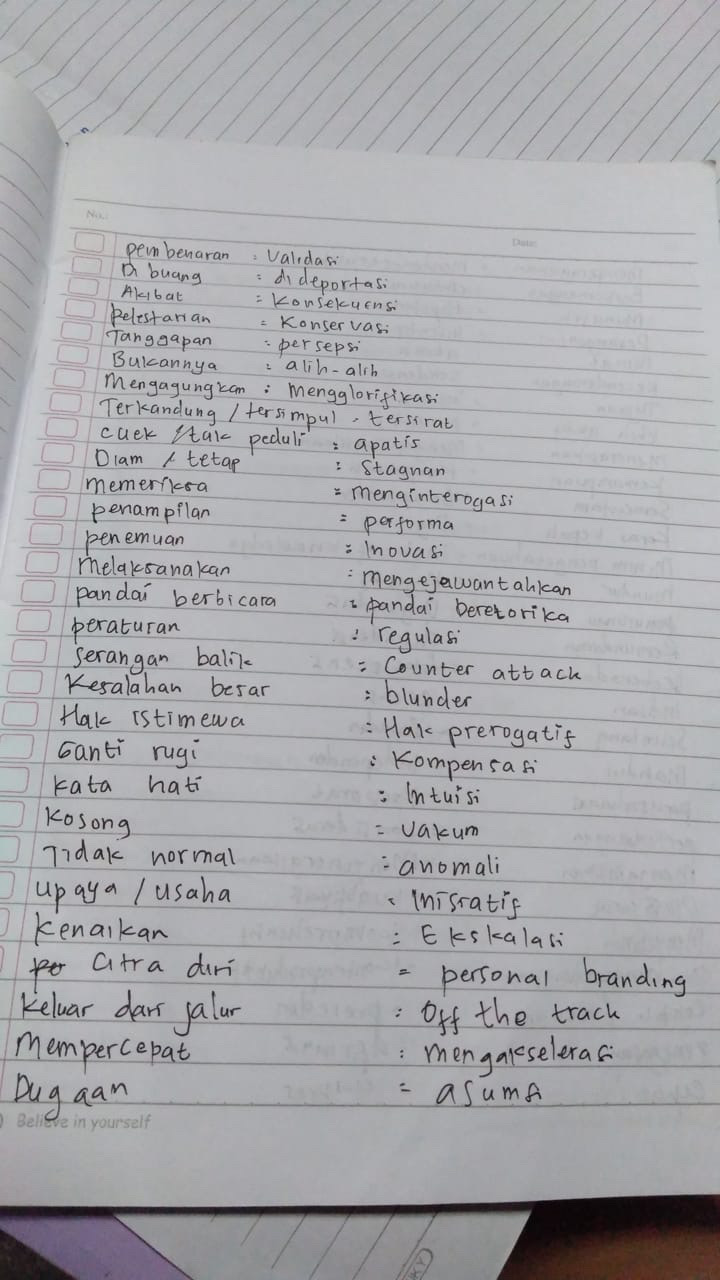 No.:
Date:
pembenaran : Validasi
Di buang : di deportasi
Akibat = Konsekuensi
pelestarian = Konservasi
Tanggapan : persepsi
Bukannya : alih-alih
Mengagungkan : Mengglorifikasi
Terkandung / tersimpul . tersirat
cuek / tak peduli : apatis
Diam / tetap : Stagnan
Memeriksa = menginterogasi
penampilan = performa
penemuan = Inovasi
Melaksanakan : mengejawantahkan
pandai berbicara : pandai beretorika
peraturan : regulasi
Serangan balik = Counter attack
Kesalahan besar : blunder
Hak istimewa = Hak prerogatif
Ganti rugi : Kompensasi
Kata hati : Intuisi
Kosong = Vakum
Tidak normal = anomali
upaya / usaha = Inisiatif
Kenaikan = Ekskalasi
Citra diri = personal branding
Keluar dari jalur : Off the track
Mempercepat : mengakselerasi
Dugaan = asumsi
Believe in yourself